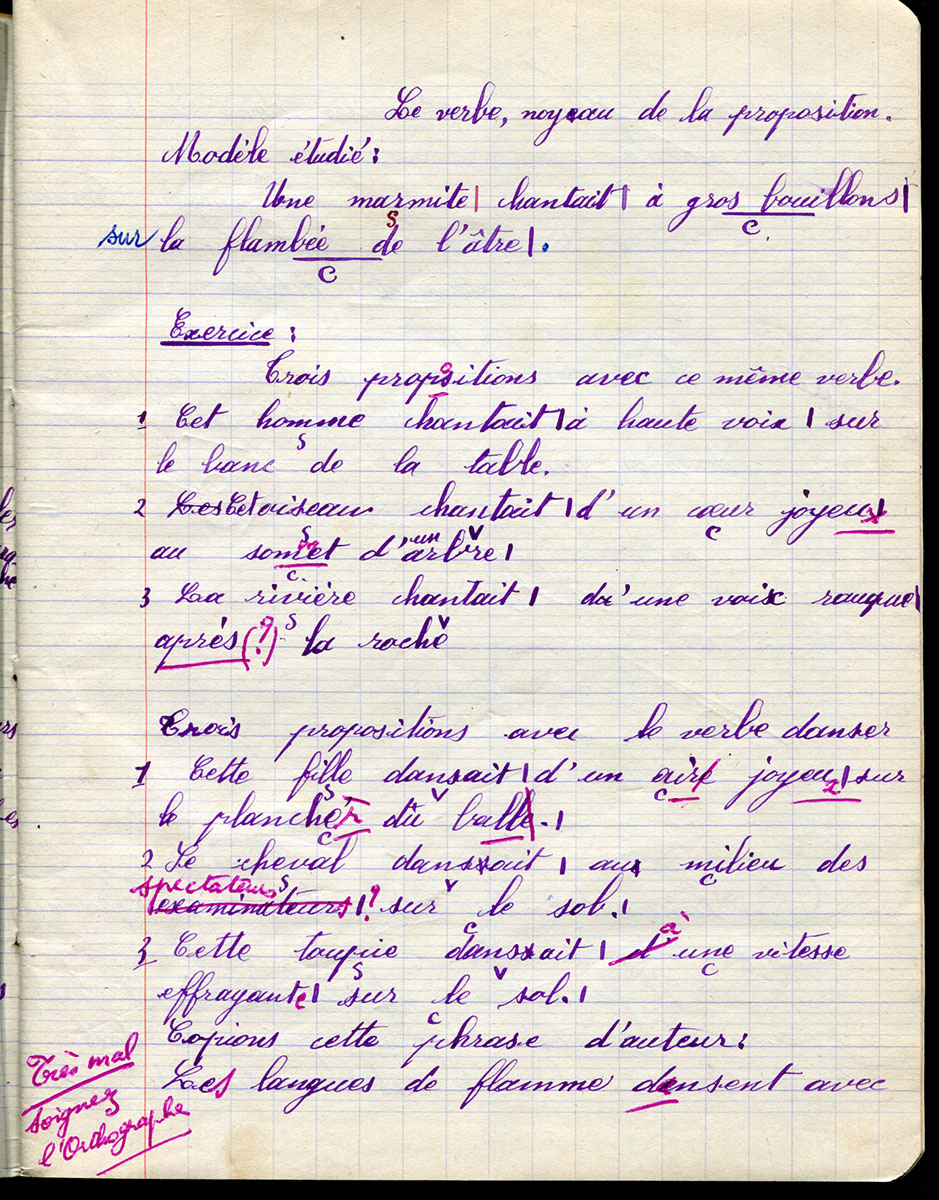 Le verbe, noyeau de la proposition.
Modèle étudié :
Une marmite | chantait | à gros bouillons |
S
C
sur la flambée de l'âtre | .
C
Exercice :
Trois propositions avec ce même verbe.
1 Cet homme chantait | à haute voix | sur
S
le banc de la table.
2 Cet oiseau chantait | d'un cœur joyeux |
S
C
au somet d'un arbre |
C.
V
3 La rivière chantait | d'une voix rauque |
S
après (?) la roche
V
Trois propositions avec le verbe danser
1 Cette fille dansait | d'un air joyeux | sur
S
V
C
le plancher du balle. |
C
2 Le cheval dansait | au milieu des
S
V
C
spectateurs
examinateurs | ? sur le sol. |
C
3 Cette toupie dansait | à d'une vitesse
S
V
C
effrayante | sur le sol. |
C
Copions cette phrase d'auteur :
Les langues de flamme densent avec
Très mal
soignez
l'Orthographe